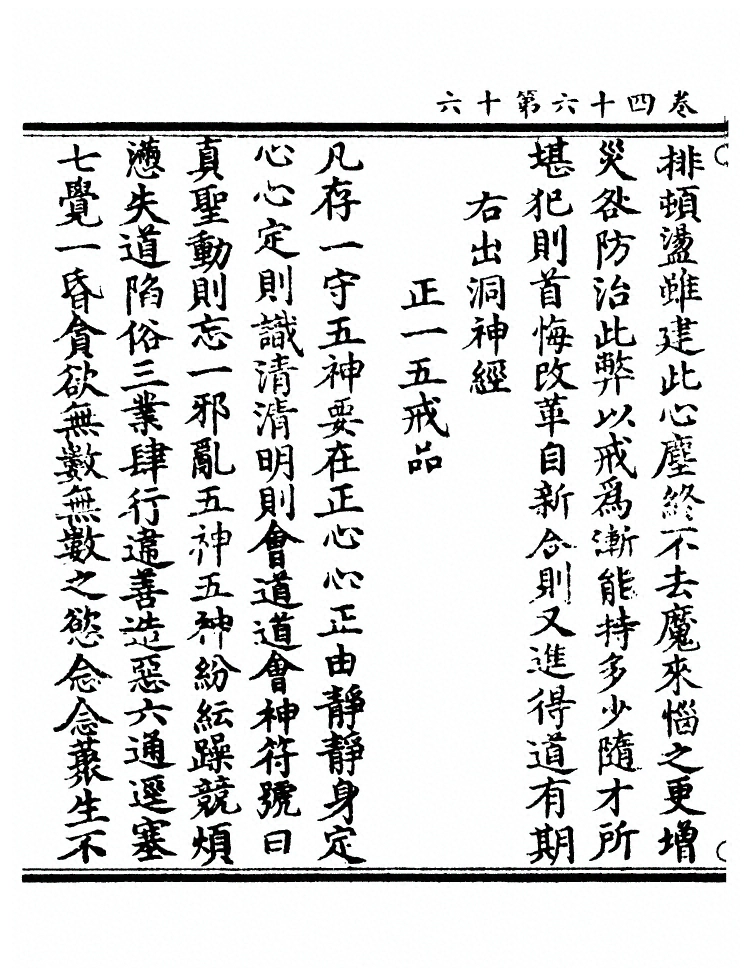 卷四十六第十六
排頓盪雖建此心塵終不去魔來惱之更增
災咎防治此弊以戒為漸能持多少隨才所
堪犯則首悔改革自新合則又進得道有期
右出洞神經
正一五戒品
凡存一守五神要在正心心正由靜靜身定
心心定則識清清明則會道道會神符號曰
真聖動則忘一邪亂五神五神紛紜躁競煩
懣失道陷俗三業肆行違善造惡六通逕塞
七覺一昏貪欲無數無數之慾念念藂生不